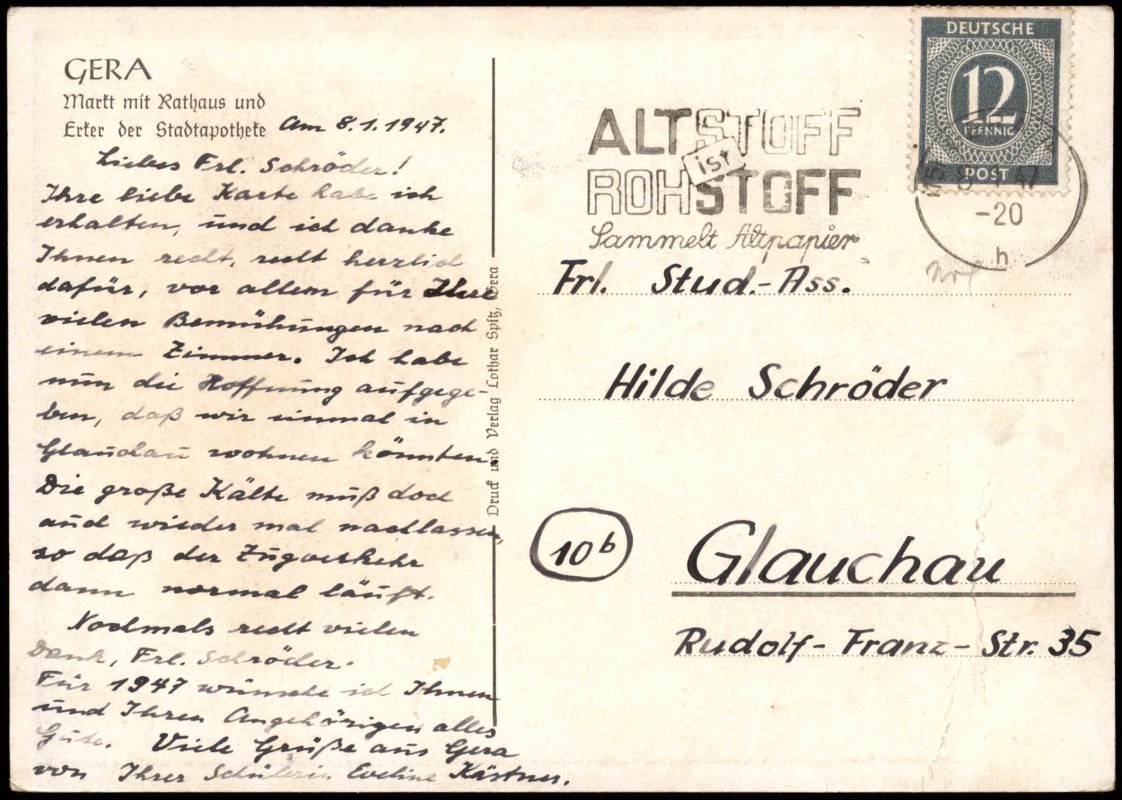 GERA
Markt mit Rathaus und
Erker der Stadtapotheke
Am 8.1.1947.
Liebes Frl. Schröder!
Ihre liebe Karte habe ich
erhalten, und ich danke
Ihnen recht, recht herzlich
dafür, vor allem für Ihre
vielen Bemühungen nach
einem Zimmer. Ich habe
nun die Hoffnung aufgege-
ben, daß wir einmal in
Glauchau wohnen könnten.
Die große Kälte muß doch
auch wieder mal nachlassen,
so daß der Zugverkehr
dann normal läuft.
Nochmals recht vielen
Dank, Frl. Schröder.
Für 1947 wünsche ich Ihnen
und Ihren Angehörigen alles
Gute. Viele Grüße aus Gera
von Ihrer Schülerin Eveline Kästner.
Druck und Verlag Lothar Spitz, Gera
ALTSTOFF
ist
ROHSTOFF
Sammelt Altpapier
DEUTSCHE
12
PFENNIG
POST
-20
h
Frl. Stud.-Ass.
Hilde Schröder
10b
Glauchau
Rudolf-Franz-Str. 35